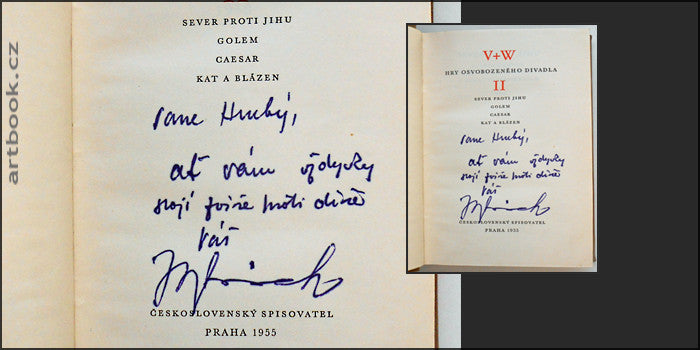 artbook.cz
SEVER PROTI JIHU
GOLEM
CAESAR
KAT A BLÁZEN
Pane Hrubý,
ať vám vždycky
stojí proti
Váš
ČESKOSLOVENSKÝ SPISOVATEL
PRAHA 1955
V+W
HRY OSVOBOZENÉHO DIVADLA
II
SEVER PROTI JIHU
GOLEM
CAESAR
KAT A BLÁZEN
Pane Hrubý,
ať vám vždycky
stojí proti
Váš
ČESKOSLOVENSKÝ SPISOVATEL
PRAHA 1955